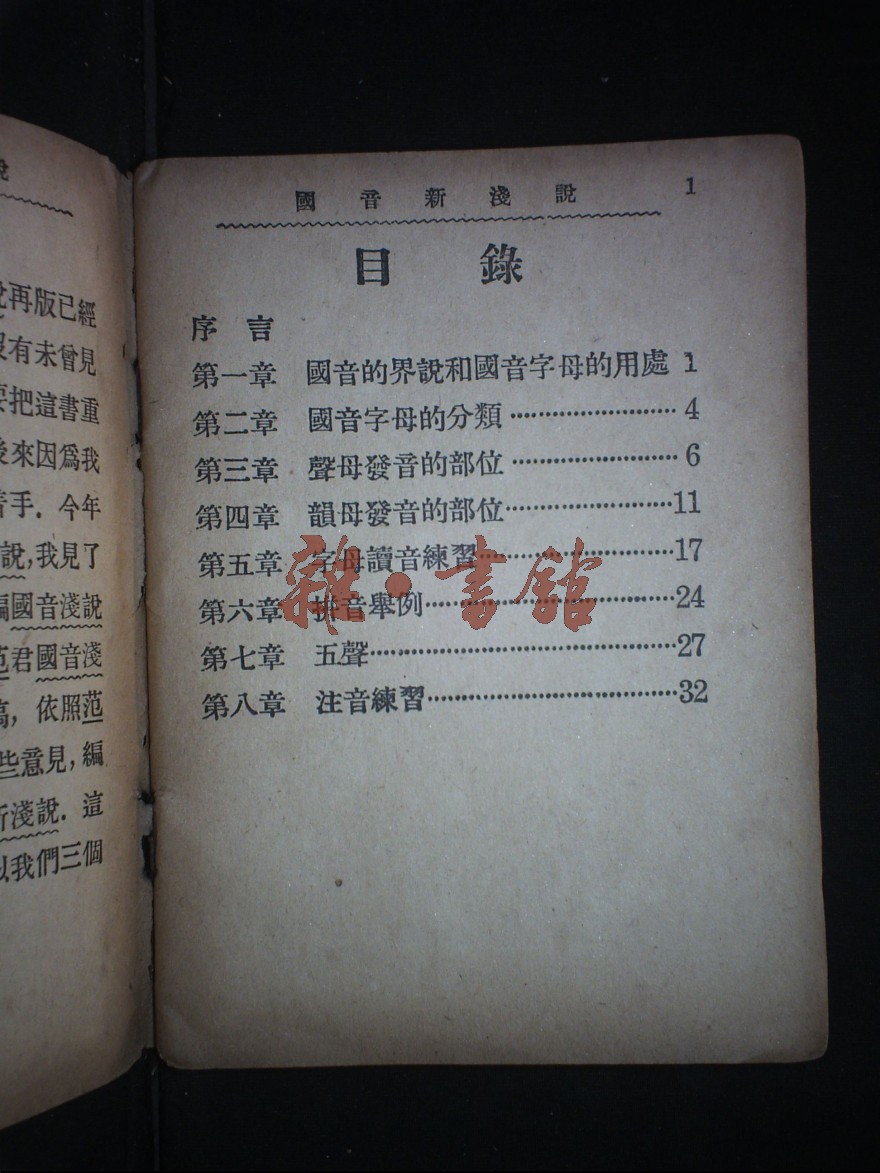 再版已經
有未曾見
把這書重
後來因爲我
着手．今年
說，我見了
編國音淺說
范君國音淺
稿，依照范
些意見，編
新淺說．這
以我們三個
國音新淺說 1
目錄
序言
第一章 國音的界說和國音字母的用處 1
第二章 國音字母的分類 ⋯⋯⋯⋯⋯⋯ 4
第三章 聲母發音的部位 ⋯⋯⋯⋯⋯⋯ 6
第四章 韻母發音的部位 ⋯⋯⋯⋯⋯⋯ 11
第五章 字母讀音練習 ⋯⋯⋯⋯⋯⋯ 17
第六章 拼音舉例 ⋯⋯⋯⋯⋯⋯⋯⋯ 24
第七章 五聲 ⋯⋯⋯⋯⋯⋯⋯⋯⋯⋯ 27
第八章 注音練習 ⋯⋯⋯⋯⋯⋯⋯⋯ 32
雜·書館